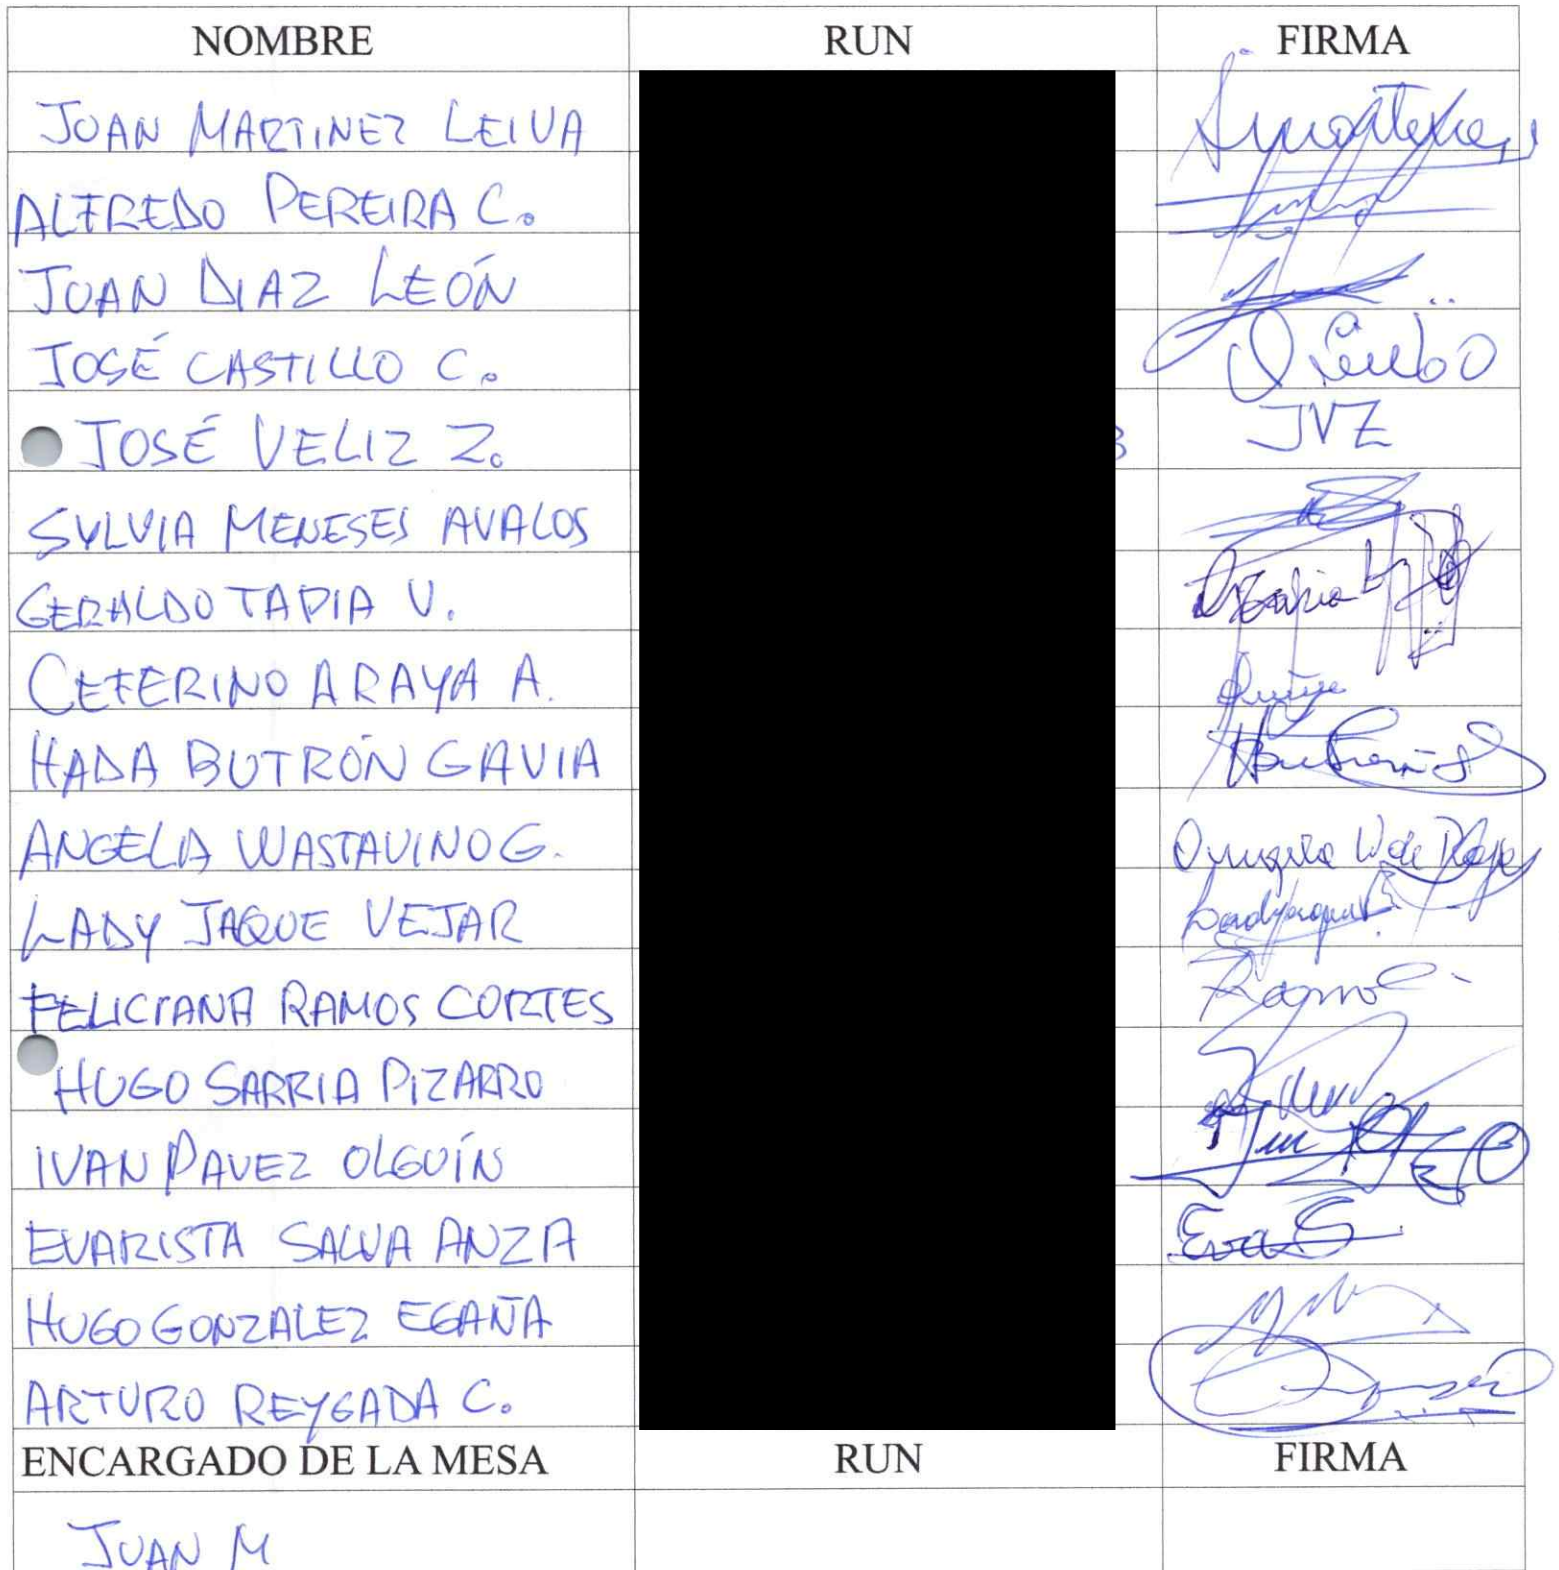 NOMBRE RUN FIRMA
JUAN MARTINEZ LEIVA
ALFREDO PEREIRA C.
JUAN DIAZ LEÓN
JOSÉ CASTILLO C.
JOSÉ VELIZ Z. JVZ
SYLVIA MENESES AVALOS
GERALDO TAPIA V.
CEFERINO ARAYA A.
HADA BUTRÓN GAVIA
ANGELA WASTAVINO G.
LADY JAQUE VEJAR
FELICIANA RAMOS CORTES
HUGO SARRIA PIZARRO
IVAN PAVEZ OLGUÍN
EVARISTA SALVA ANZA Eva S
HUGO GONZALEZ EGAÑA
ARTURO REYGADA C.
ENCARGADO DE LA MESA RUN FIRMA
JUAN M